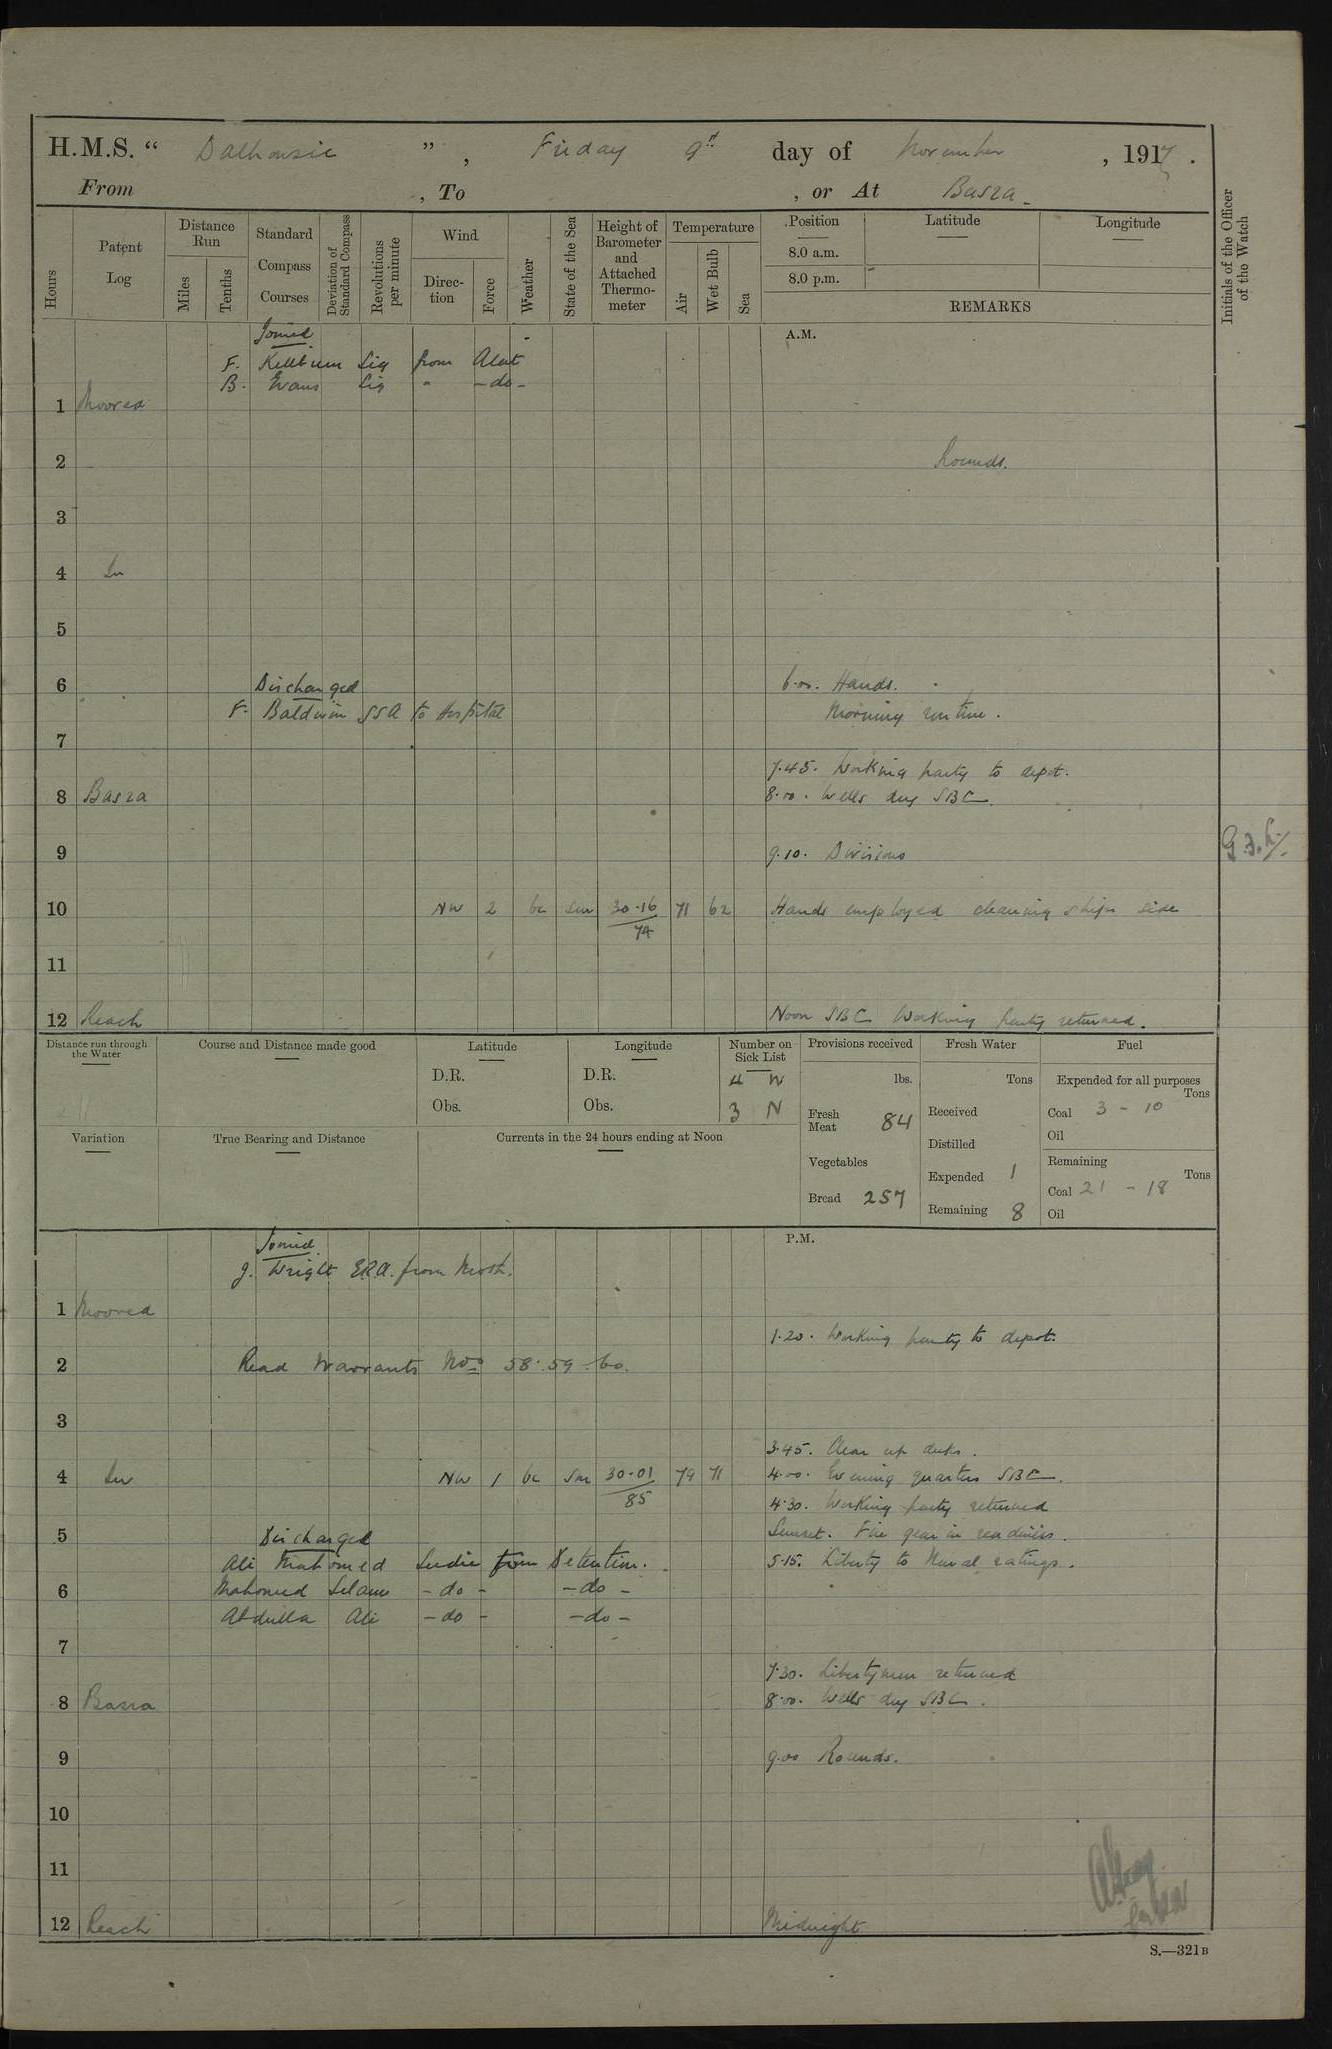 H.M.S. " Dalhousie ", Friday 9th day of November, 1917.
From , To , or At Basra.
Hours
Patent Log
Distance Run
Miles
Tenths
Standard Compass Courses
Deviation of Standard Compass
Revolutions per minute
Wind
Direction
Force
Weather
State of the Sea
Height of Barometer and Attached Thermometer
Temperature
Air
Wet Bulb
Sea
Position
Latitude
Longitude
8.0 a.m.
8.0 p.m.
REMARKS
Initials of the Officer of the Watch
Joined
A.M.
F. Kellburn Sig from Alert
B. Evans Sig " -do-
1 Moored
2 Rounds.
3
4 In
5
6 Discharged 6.00. Hands.
F. Baldwin SSA to Hospital Morning routine.
7
7.45. Working party to depot.
8 Basra 8.00. Wells dry SBC.
9 9.10. Divisions
10 NW 2 bc sm 30.16 71 62 Hands employed cleaning ships side
74
11
12 Reach Noon SBC Working party returned.
Distance run through the Water
Course and Distance made good
Latitude
Longitude
Number on Sick List
Provisions received
Fresh Water
Fuel
D.R.
D.R.
4 W
lbs.
Tons
Expended for all purposes
Tons
Obs.
Obs.
3 N
Fresh Meat 84
Received
Coal 3 - 10
Oil
Variation
True Bearing and Distance
Currents in the 24 hours ending at Noon
Distilled
Vegetables
Remaining
Tons
Expended 1
Coal 21 - 18
Bread 257
Remaining 8
Oil
Joined P.M.
J. Wright ERA. from Mosh.
1 Moored
1.20. Working party to depot.
2 Read Warrants Nos 58. 59. 60.
3
3.45. Clear up decks.
4 In NW 1 bc sm 30.01 79 71 4.00. Evening quarters SBC.
85
4.30. Working party returned
5 Discharged Sunset. Fire gear in readiness.
Ali Mahomed Seedie from Detention. 5.15. Liberty to Naval ratings.
6 Mahomed Selam -do- -do-
Abdulla Ali -do- -do-
7
7.30. Libertymen returned
8 Basra 8.00. Wells dry SBC.
9 9.00 Rounds.
10
11
12 Reach Midnight
S.—321B